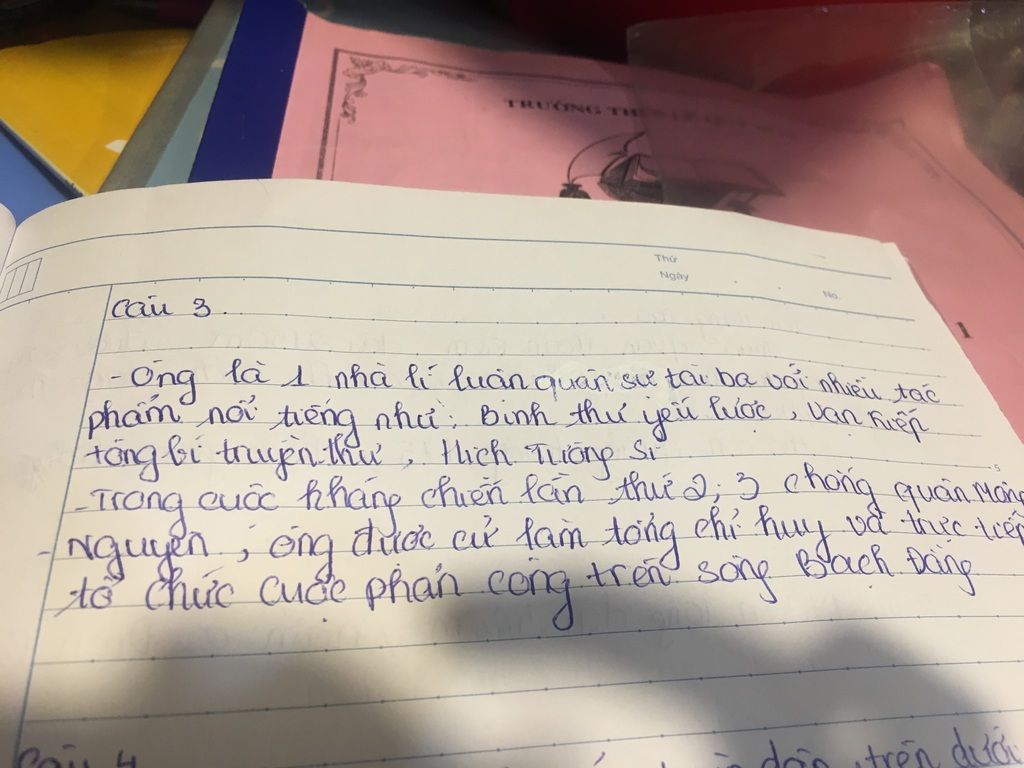 TRƯỜNG TH
Thứ
Ngày
No.
Câu 3
- Ông là 1 nhà lí luận quân sự tài ba với nhiều tác
phẩm nổi tiếng như: Binh thư yếu lược, Vạn Kiếp
tông bí truyền thư, Hịch Tướng Sĩ
- Trong cuộc kháng chiến lần thứ 2; 3 chống quân Mông
- Nguyên, ông được cử làm tổng chỉ huy và trực tiếp
tổ chức cuộc phản công trên sông Bạch Đằng
Câu 4
trên dưới